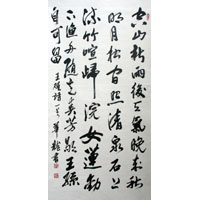 空山新雨後天氣晚来秋
明月松间照清泉石上
流竹喧歸浣女蓮動
下漁舟随意春芳歇王孫
自可留
王維詩